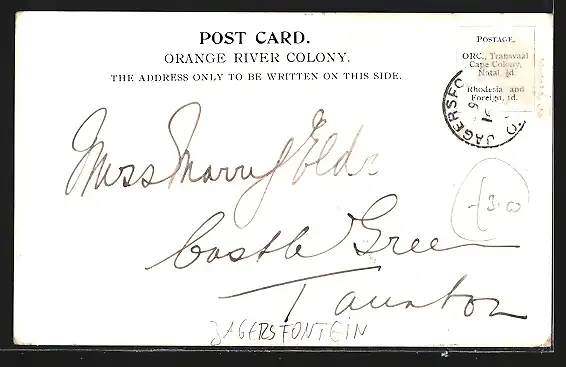 POST CARD.
ORANGE RIVER COLONY.
THE ADDRESS ONLY TO BE WRITTEN ON THIS SIDE.
POSTAGE.
ORC., Transvaal
Cape Colony,
Natal, ½d.
Rhodesia and
Foreign, 1d.
JAGERSFO
Miss
Castle Green
Taunton
JAGERSFONTEIN